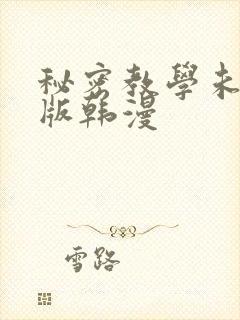 秘密教學未
版韩漫
雪路